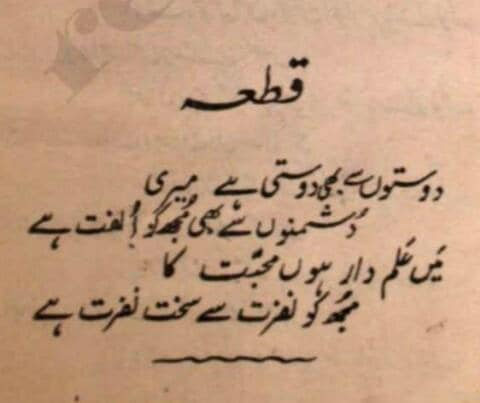 قطعہ
دوستوں سے بھی دوستی ہے میری
دُشمنوں سے بھی مُجھ کو اُلفت ہے
مَیں عَلم دار ہوں محبّت کا
مُجھ کو نفرت سے سخت نفرت ہے